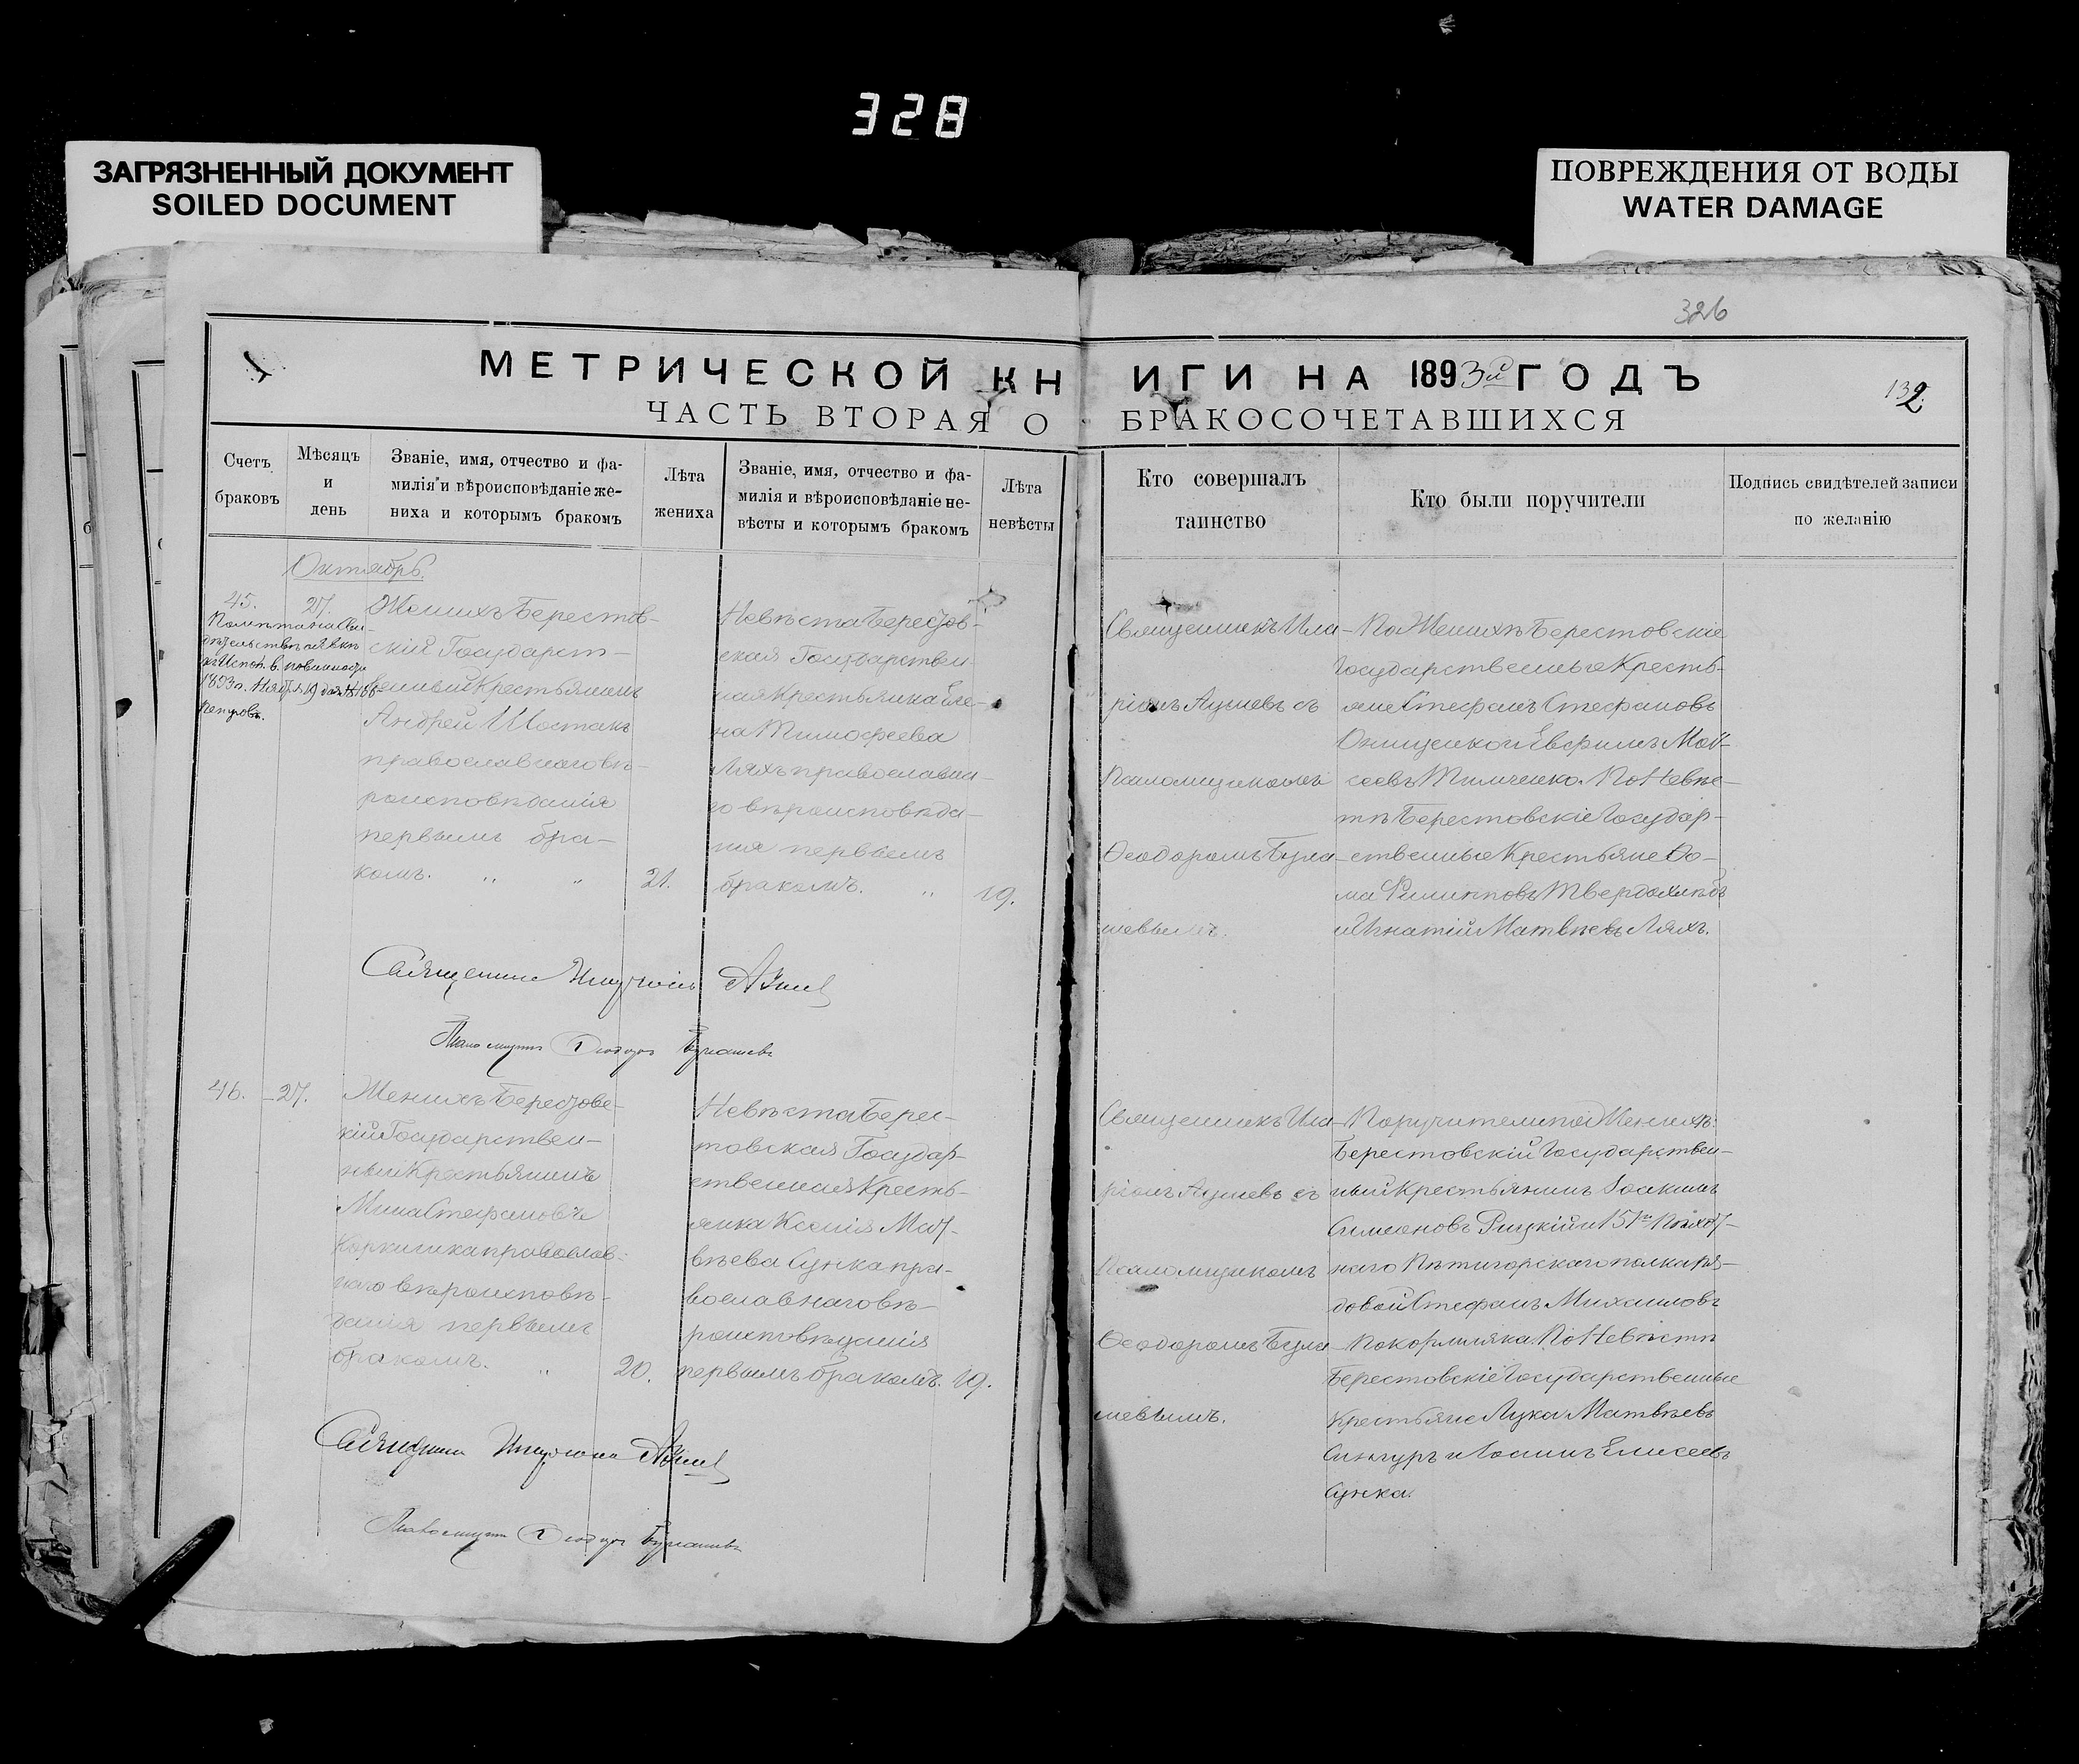 328
ЗАГРЯЗНЕННЫЙ ДОКУМЕНТ
SOILED DOCUMENT
ПОВРЕЖДЕНИЯ ОТ ВОДЫ
WATER DAMAGE
326
МЕТРИЧЕСКОЙ КНИГИ НА 1893й ГОДЪ
132
ЧАСТЬ ВТОРАЯ О БРАКОСОЧЕТАВШИХСЯ
Счетъ браковъ
Мѣсяцъ и день
Званіе, имя, отчество и фа-
милія и вѣроисповѣданіе же-
ниха и которымъ бракомъ
Лѣта жениха
Званіе, имя, отчество и фа-
милія и вѣроисповѣданіе не-
вѣсты и которымъ бракомъ
Лѣта невѣсты
Кто совершалъ
таинство
Кто были поручители
Подпись свидѣтелей записи
по желанію
Октябрь.
45.
27.
Женихъ Берестов-
скій Государст-
венный Крестьянинъ
Андрей Шостакъ
православнаго вѣ-
роисповѣданія
первымъ бра-
комъ.
21.
Невѣста Берестов-
ская Государствен-
ная крестьянка Еле-
на Тимофеева
Ляхъ православна-
го вѣроисповѣда-
нія первымъ
бракомъ.
19.
Священникъ Ила-
ріонъ Аушевъ съ
Псаломщикомъ
Ѳеодоромъ Була-
шевымъ.
По Женихѣ Берестовскіе
Государственные Кресть-
яне Стефанъ Стефановъ
Онищенко и Евфимъ Мой-
сеевъ Тимченко. По Невѣ-
стѣ Берестовскіе Государ-
ственные Крестьяне Ѳо-
ма Филипповъ Твердохлѣбъ
и Игнатій Матвѣевъ Ляхъ.
46.
27.
Женихъ Берестовс-
кій Государствен-
ный Крестьянинъ
Мина Стефановъ
православ-
наго вѣроисповѣ-
данія первымъ
бракомъ.
20.
Невѣста Берес-
товская Государ-
ственная Кресть-
янка Ксенія Мат-
вѣева Сунка пра-
вославнаго вѣ-
роисповѣданія
первымъ бракомъ.
19.
Священникъ Ила-
ріонъ Аушевъ съ
Псаломщикомъ
Ѳеодоромъ Була-
шевымъ.
Поручители по Женихѣ:
Берестовскій Государствен-
ный Крестьянинъ Іоакимъ
Симеоновъ Рицкій и 151го Пѣхот-
наго Пятигорскаго полка ря-
довой Стефанъ Михаиловъ
Покормляка. По Невѣстѣ
Берестовскіе Государственные
Крестьяне Лука Матвѣевъ
и Іоаннъ Елисеевъ
Сунка.